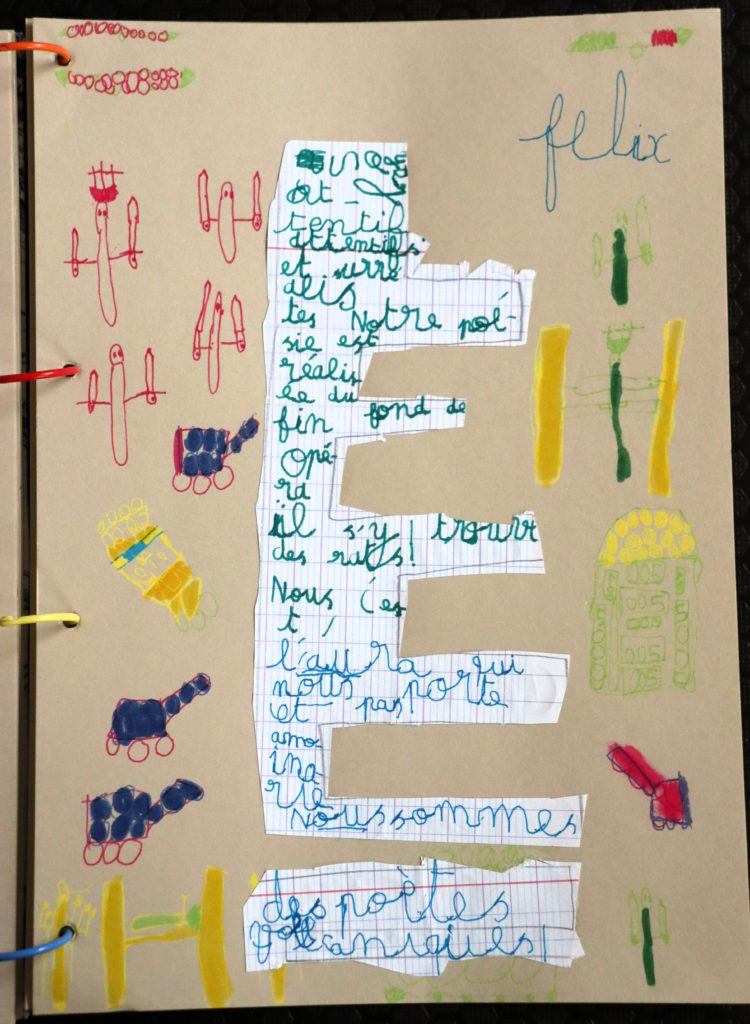 felix
at
tentif
attentifs
et surré
alis
tes Notre poé-
sie est
réalis
ée du
fin fond de
Opé-
ra
il s'y trouve
des rats!
Nous c'es
t,
l'aura qui
nous porte
et pas
amo-
ina-
rie
Nous sommes
des poètes
Volcaniques!
005
005
005
005